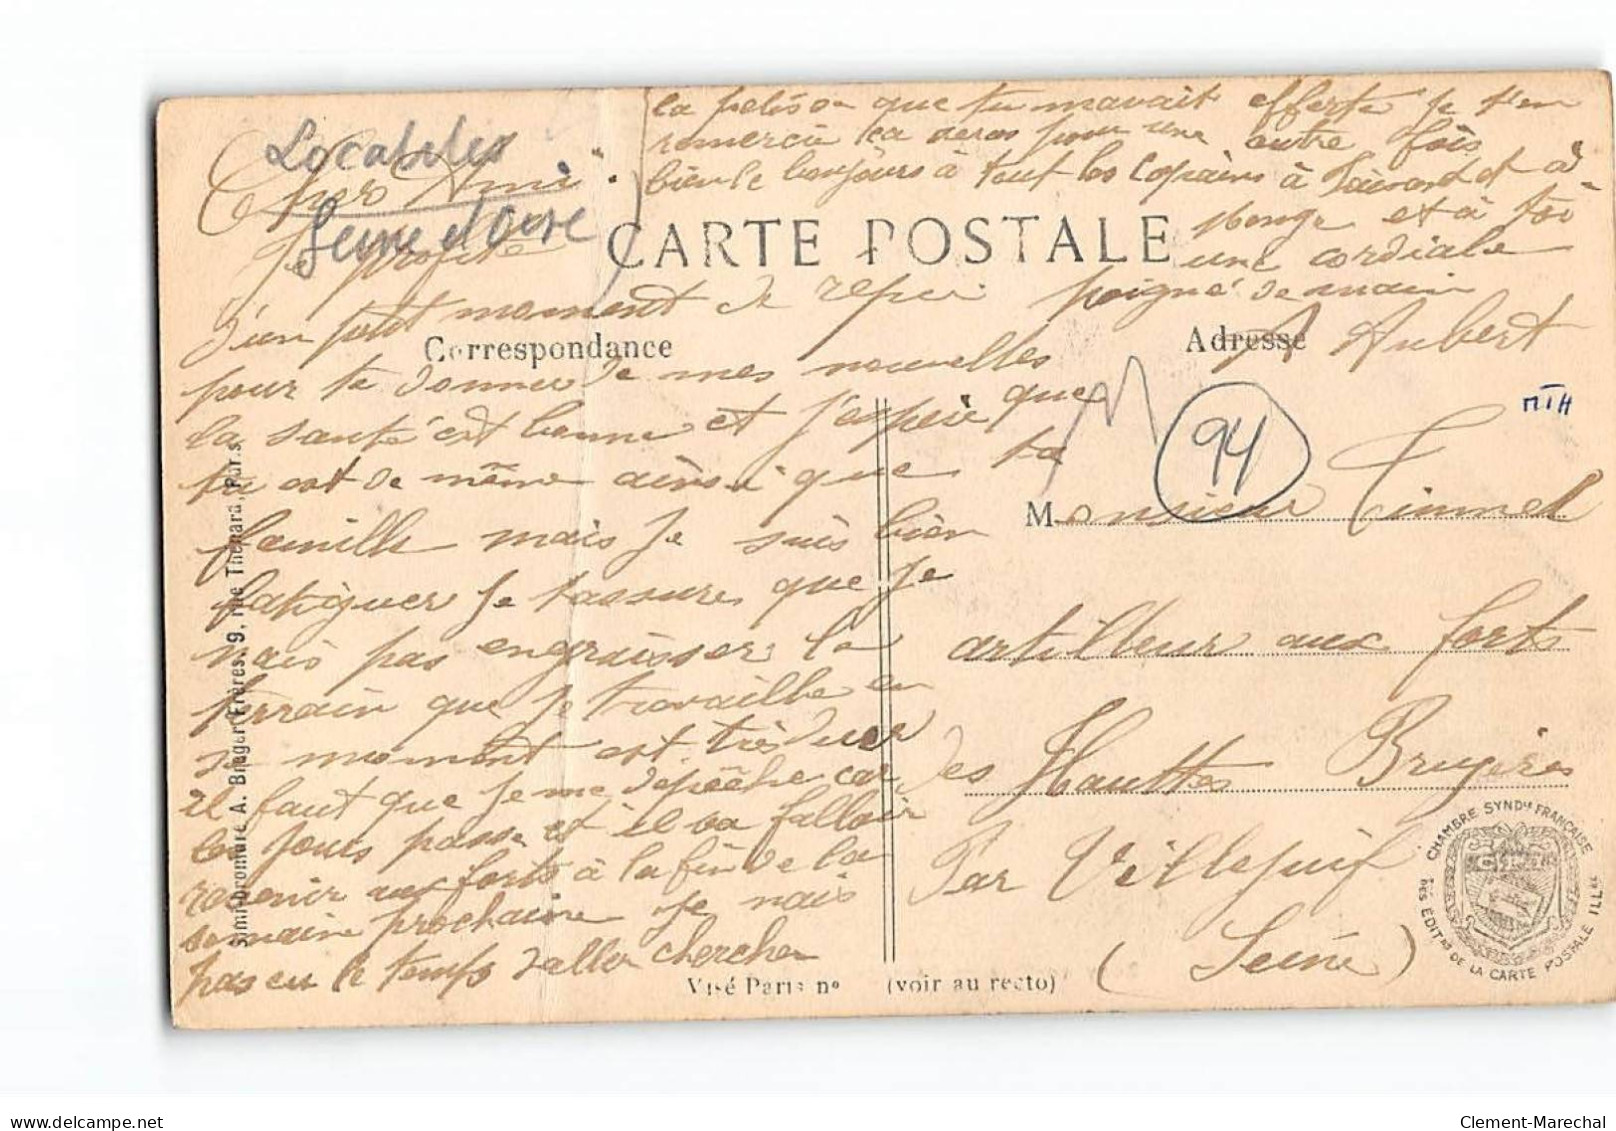 Localités
Seine et Oise
Cher Ami
Je profite
d'un petit moment de repos
pour te donner de mes nouvelles
la santé est bonne et j'espère que
tu est de même ainsi que ta
famille mais je suis bien
fatiguer je tassure que je
nais pas engraisser le
terrain que je travaille en
se moment est très dure
il faut que je me dépêche car
les jours passe et il va falloir
revenir aux forts à la fin de la
semaine prochaine je nais
pas eu le temps daller chercher
la que tu mavait offerte je t'en
remercie ca seras pour une autre fois
bien le bonjours à tout les Copains à et à
et à toi
une cordiale
poigné de main
A Aubert
CARTE POSTALE
Correspondance
Adresse
94
MTH
Monsieur
artilleur aux forts
des Hauttes Bruyères
Par Villejuif
(Seine)
Visé Paris n° (voir au recto)
Simili-bromure A. Breger Frères, 9, rue Thénard, Paris
CHAMBRE SYNDle FRANÇAISE
DES ÉDITrs DE LA CARTE POSTALE ILLée
delcampe.net
Clement-Marechal